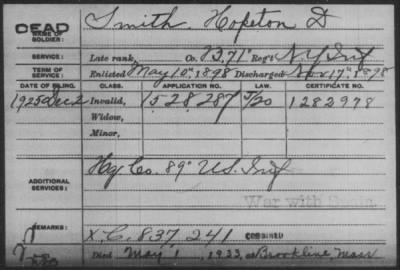 DEAD
NAME OF SOLDIER:
Smith, Hopeton D
SERVICE:
Late rank, Co. B, 71" Reg't N.Y. Inf
TERM OF SERVICE:
Enlisted May 10", 1898 Discharged Nov 17", 1898
DATE OF FILING. CLASS. APPLICATION NO. LAW. CERTIFICATE NO.
1925 Dec 2 Invalid, 1528287 J/20 1282978
Widow,
Minor,
ADDITIONAL SERVICES:
Hq Co. 89" U.S. Inf
War with Spain.
REMARKS:
X.C. 837 241 COMBINED
Died May 1, 1933, at Brookline, Mass